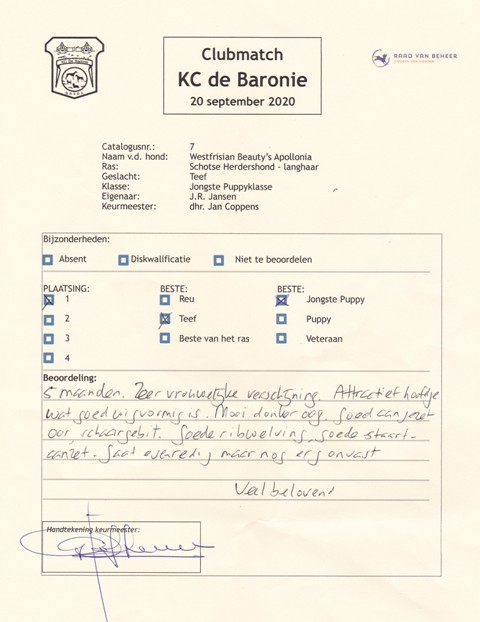 Clubmatch
KC de Baronie
20 september 2020
RAAD VAN BEHEER
KC De Baronie
BREDA
Catalogusnr.: 7
Naam v.d. hond: Westfrisian Beauty's Apollonia
Ras: Schotse Herdershond - langhaar
Geslacht: Teef
Klasse: Jongste Puppyklasse
Eigenaar: J.R. Jansen
Keurmeester: dhr. Jan Coppens
Bijzonderheden:
Absent Diskwalificatie Niet te beoordelen
PLAATSING: BESTE: BESTE:
1 Reu Jongste Puppy
2 Teef Puppy
3 Beste van het ras Veteraan
4
Beoordeling:
5 maanden. Zeer vrouwelijke verschijning. Attractief hoofdje
wat goed wigvormig is. Mooi donker oog. Goed aangezet
oor, schaargebit. Goede ribwelving, goede staart-
aanzet. Gaat evenredig maar nog erg onvast
Veelbelovend
Handtekening keurmeester: